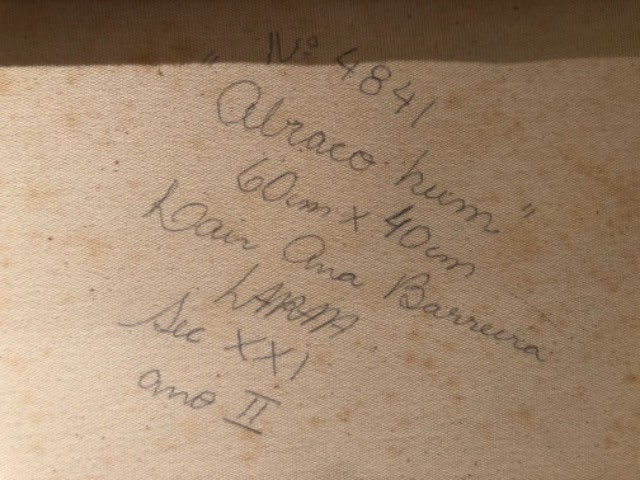 Nº 4841
"Abraco hum"
60cm x 40cm
Lair Ana Barreira
Sec XXI
ano II